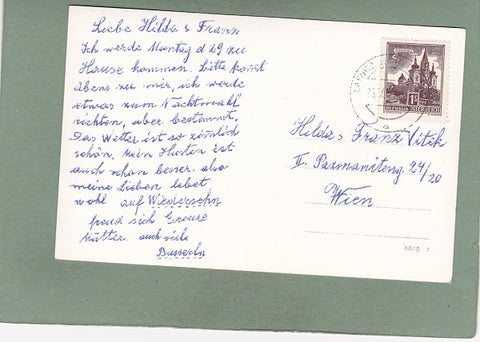 Liebe Hilda & Franz
Ich werde Montag d 29 zu
Hause kommen. Bitte kommt
Abens zu mir, ich werde
etwas zum Nachtmahl
richten, aber bestimmt.
Das Wetter ist so zimlich
schön, mein Husten ist
auch schon besser. also
meine lieben lebet
wohl auf Wiedersehn
freud sich Eueure
Mutter. auch viele
Busserln
Hilda & Franz Vitek
II. Pazmaniteng. 24/20
Wien
REPUBLIK ÖSTERREICH
6845 7